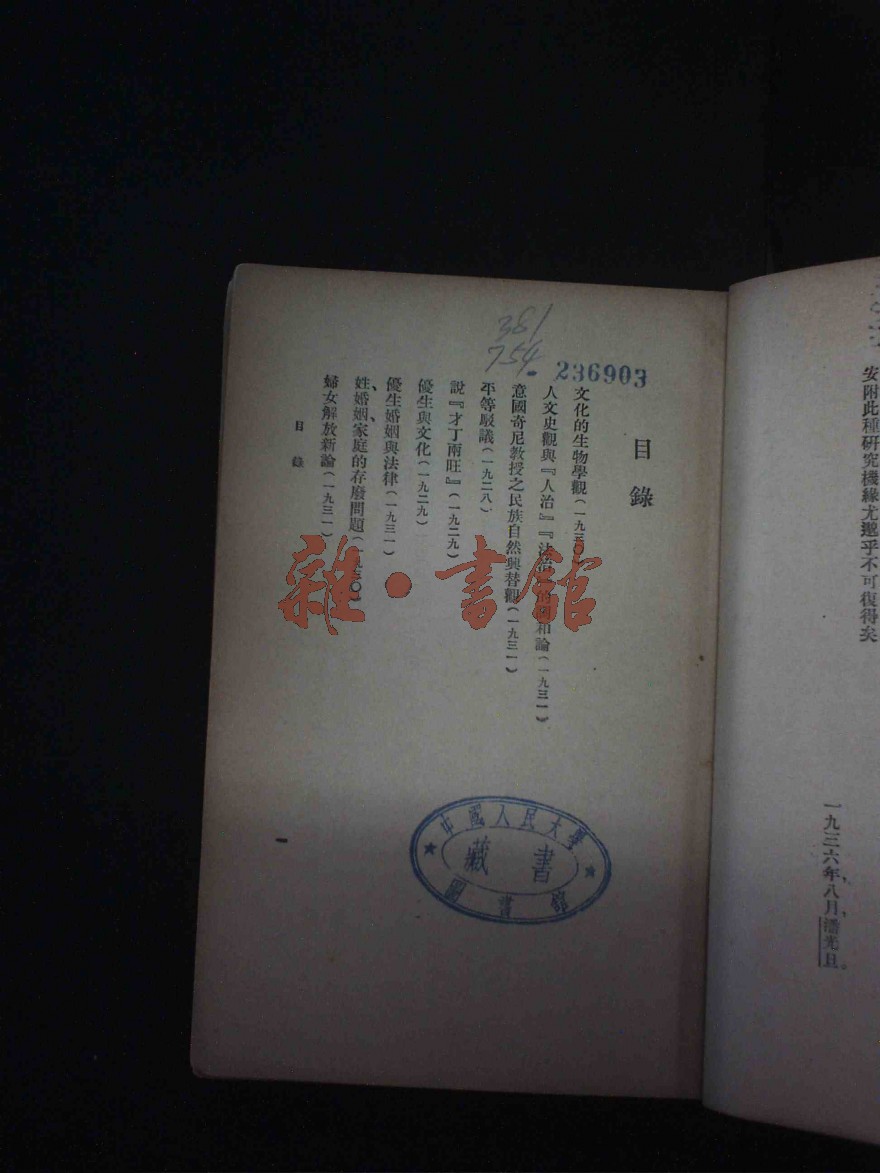 安附此種硏究機緣尤邈乎不可復得矣
一九三六年,八月,潘光旦。
381
754
236903
目錄
文化的生物學觀(一九三〇)
人文史觀與『人治』『法治』的調和論(一九三一)
意國奇尼敎授之民族自然興替觀(一九三一)
平等駁議(一九二八)
說『才丁兩旺』(一九二九)
優生與文化(一九二九)
優生婚姻與法律(一九三一)
姓、婚姻、家庭的存廢問題(一九三〇)
婦女解放新論(一九三一)
目錄
中國人民大學
藏書
圖書館
雜·書館